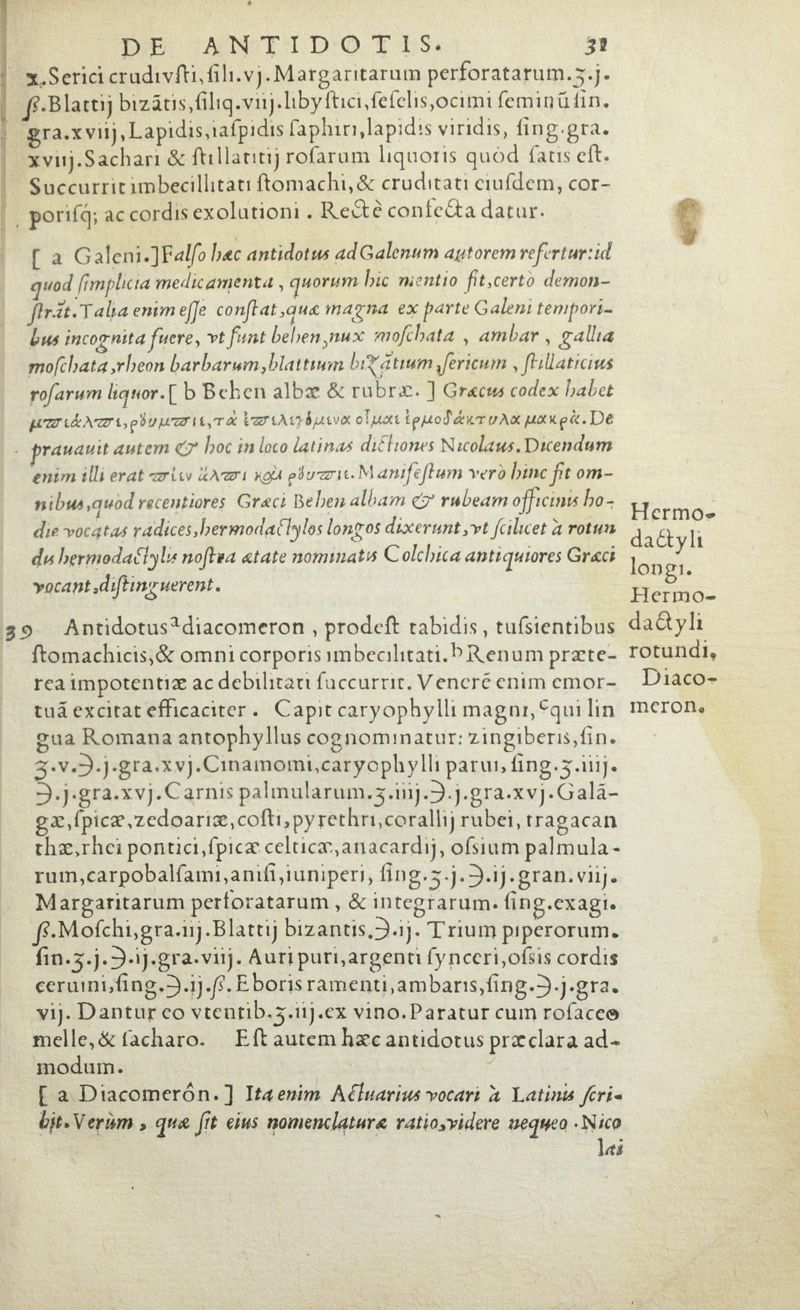 DE ANTIDOTIS. 31
x. Serici crudi vſti, ſili. vj. Margaritarum perforatarum. ʒ. j.
ß. Blattij bizãtis, ſiliq. viij. libyſtici, ſeſelis, ocimi ſeminũ ſin.
gra. xviij, Lapidis, iaſpidis ſaphiri, lapidis viridis, ſing. gra.
xviij. Sachari & ſtillatitij roſarum liquoris quòd ſatis eſt.
Succurrit imbecillitati ſtomachi, & cruditati eiuſdem, cor-
poriſq; ac cordis exolutioni. Rectè confecta datur.
[ a Galeni.] Falſo hæc antidotus ad Galenum autorem refertur: id
quod ſimplicia medicamenta, quorum hic mentio fit, certò demon-
ſtrãt. Talia enim eſſe conſtat, quæ magna ex parte Galeni tempori-
bus incognita fuere, vt ſunt behen, nux moſchata, ambar, gallia
moſchata, rheon barbarum, blattium bizãtium, ſericum, ſtillaticius
roſarum liquor. [ b Behen albæ & rubræ. ] Græcus codex habet
De
prauauit autem & hoc in loco latinas dictiones Nicolaus. Dicendum
enim illi erat Manifeſtum verò hinc fit om-
nibus, quod recentiores Græci Behen albam & rubeam officinis ho-
die vocatas radices, hermodactylos longos dixerunt, vt ſcilicet à rotun
dis hermodactylis noſtra ætate nominatis Colchica antiquiores Græci
vocant, diſtinguerent.
Hermo-
dactyli
longi.
Hermo-
dactyli
rotundi,
Diaco-
meron.
39 Antidotus ᵃ diacomeron, prodeſt tabidis, tuſsientibus
ſtomachicis, & omni corporis imbecilitati. ᵇ Renum præte-
rea impotentiæ ac debilitati ſuccurrit. Venerẽ enim emor-
tuã excitat efficaciter. Capit caryophylli magni, ᶜ qui lin
gua Romana antophyllus cognominatur: zingiberis, ſin.
ʒ. v. ℈. j. gra. xvj. Cinamomi, caryophylli parui, ſing. ʒ. iiij.
℈. j. gra. xvj. Carnis palmularum. ʒ. iiij. ℈. j. gra. xvj. Galã-
gæ, ſpicæ, zedoariæ, coſti, pyrethri, corallij rubei, tragacan
thæ, rhei pontici, ſpicæ celticæ, anacardij, oſsium palmula-
rum, carpobalſami, aniſi, iuniperi, ſing. ʒ. j. ℈. ij. gran. viij.
Margaritarum perforatarum, & integrarum. ſing. exagi.
ß. Moſchi, gra. iij. Blattij bizantis. ℈. ij. Trium piperorum.
ſin. ʒ. j. ℈. ij. gra. viij. Auri puri, argenti ſynceri, oſsis cordis
ceruini, ſing. ℈. ij. ß. Eboris ramenti, ambaris, ſing. ℈. j. gra.
vij. Dantur eo vtentib. ʒ. iij. ex vino. Paratur cum roſaceo
melle, & ſacharo. Eſt autem hæc antidotus præclara ad-
modum.
[ a Diacomerôn. ] Ita enim Actuarius vocari à Latinis ſcri-
bit. Verùm, quæ ſit eius nomenclaturæ ratio, videre nequeo. Nico
lai